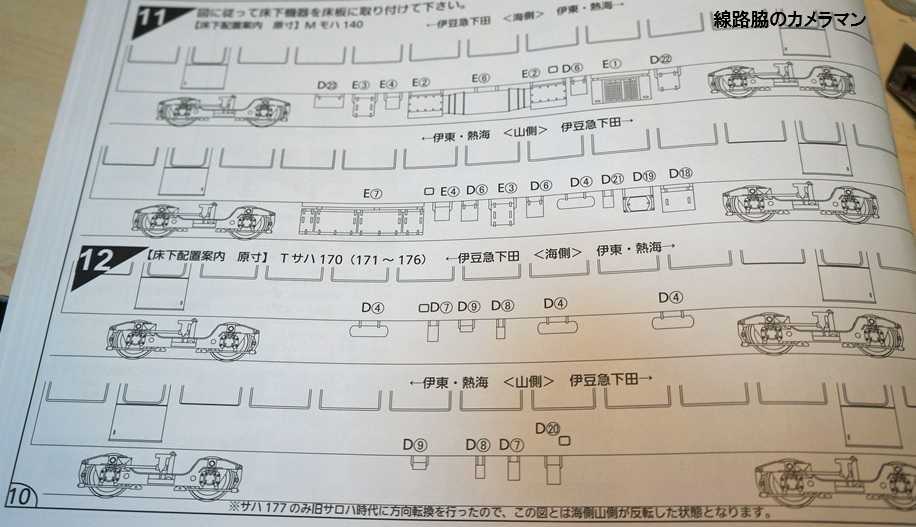 線路脇のカメラマン
11 図に従って床下機器を床板に取り付けて下さい。
【床下配置案内 原寸】M モハ 140 ←伊豆急下田 〈海側〉 伊東・熱海→
D㉓ E③ E④ E② E⑥ E② D⑥ E① D㉒
←伊東・熱海 〈山側〉 伊豆急下田→
E⑦ E④ D⑥ E③ D⑥ D④ D㉑ D⑲ D⑱
12 【床下配置案内 原寸】 T サハ 170（171～176） ←伊豆急下田 〈海側〉 伊東・熱海→
D④ D⑦ D⑨ D⑧ D④ D④
←伊東・熱海 〈山側〉 伊豆急下田→
D⑨ D⑧ D⑦ D⑳
※サハ 177 のみ旧サロハ時代に方向転換を行ったので、この図とは海側山側が反転した状態となります。
10